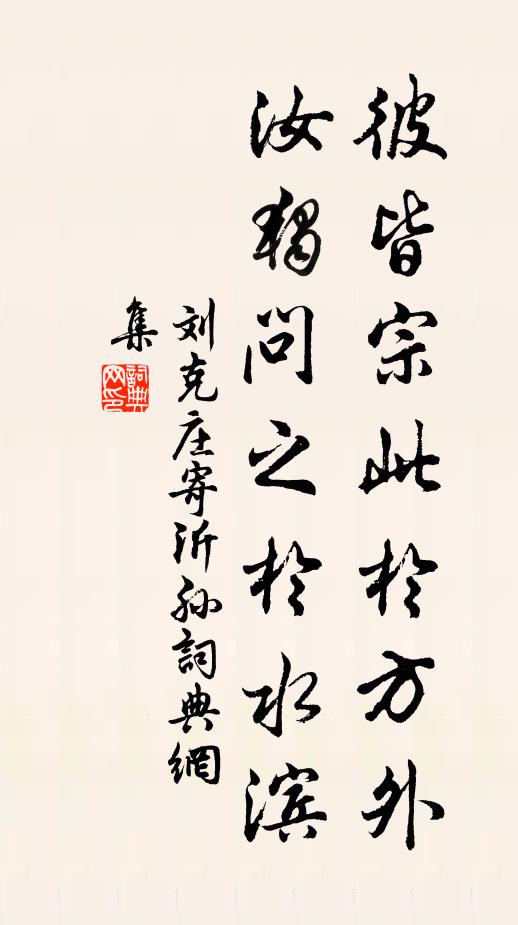 彼皆宗此於方外
汝独问之於水滨
刘克庄寄沂孙詞典網
集
詞典
网印